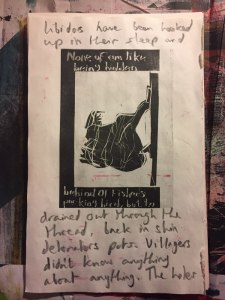 libidos have been hooked
up in their sleep and
None of em like
being hidden
behind Ol Fishers
fucking bird, but to
drained out through the
thread, back in shin
detectors pots. Villagers
didn't know anything
about anything. The holes